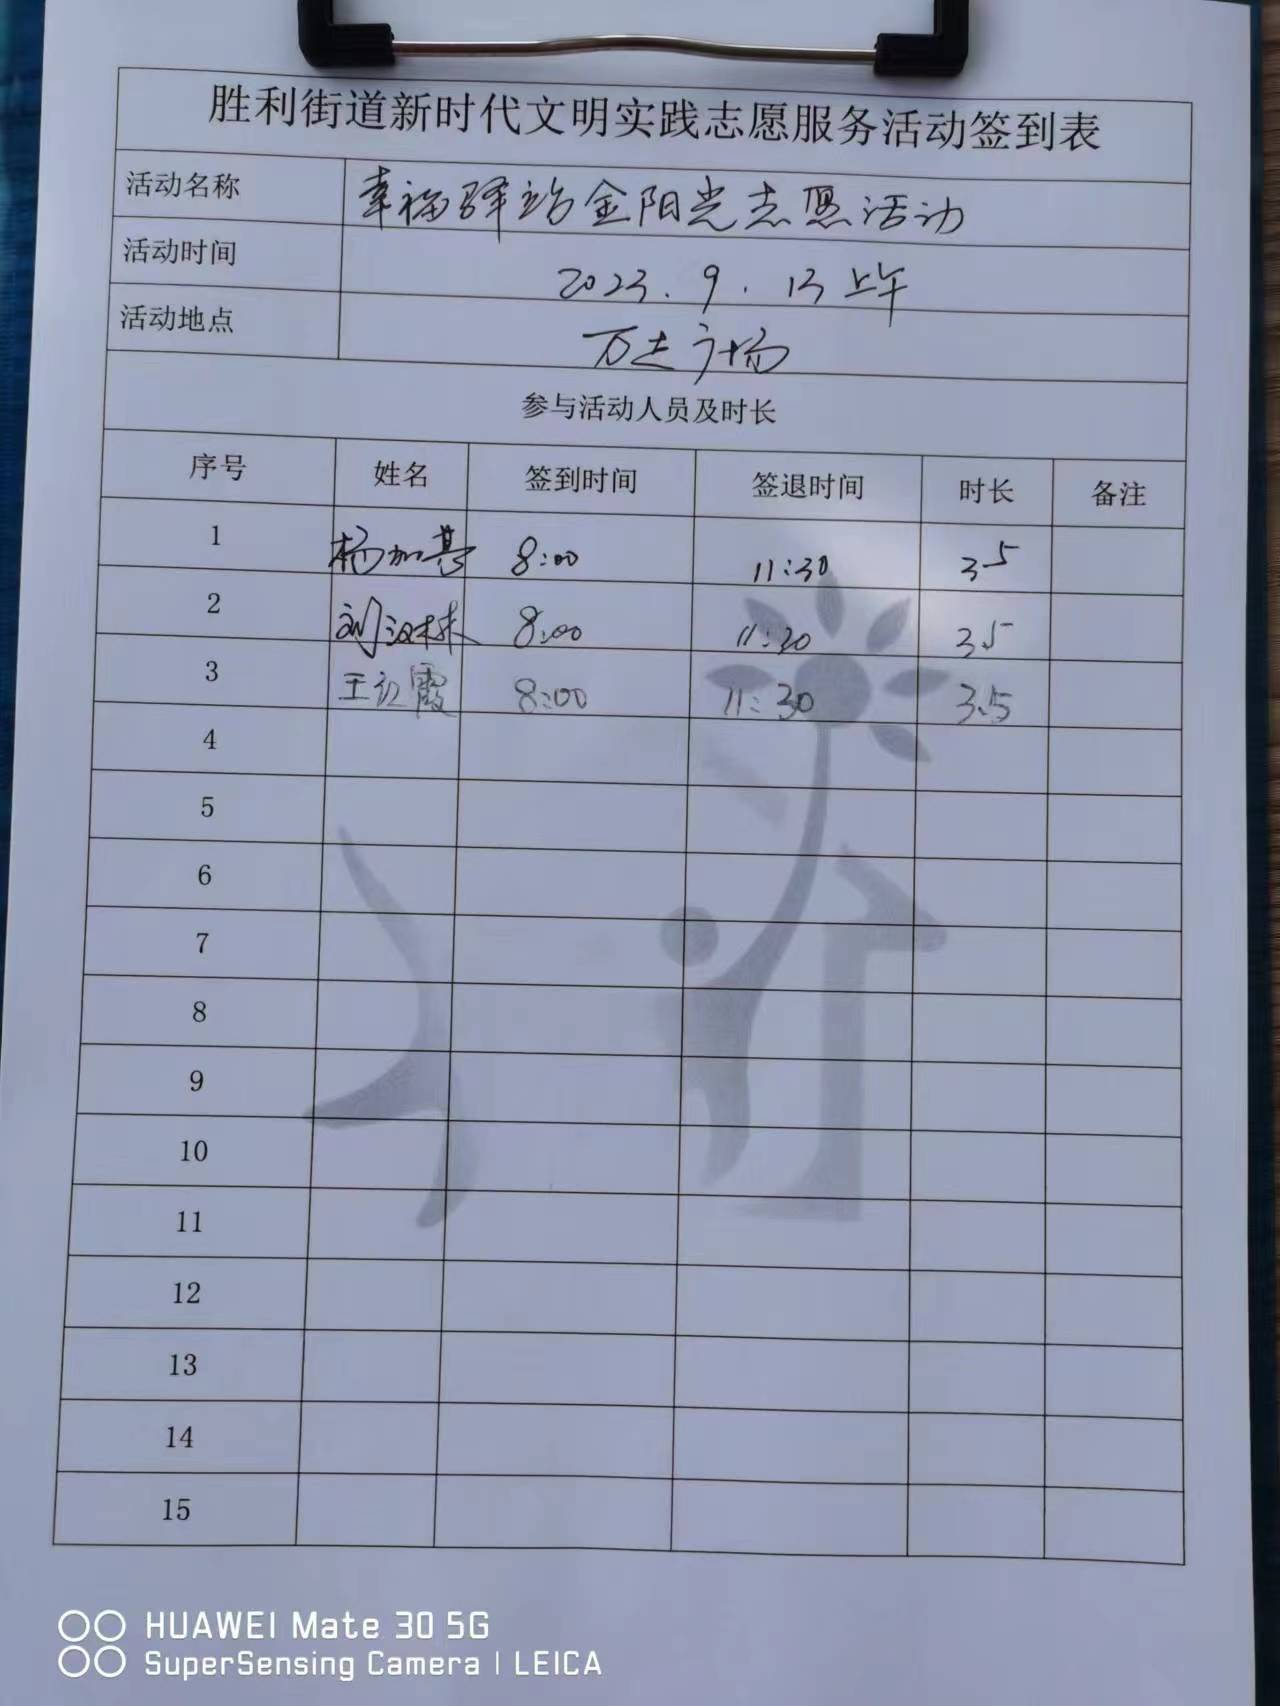 胜利街道新时代文明实践志愿服务活动签到表
活动名称 幸福驿站金阳光志愿活动
活动时间 2023.9.13上午
活动地点 万达广场
参与活动人员及时长
序号 姓名 签到时间 签退时间 时长 备注
1 杨加基 8:00 11:30 3.5
2 刘汉林 8:00 11:30 3.5
3 王红霞 8:00 11:30 3.5
4
5
6
7
8
9
10
11
12
13
14
15
HUAWEI Mate 30 5G
SuperSensing Camera | LEICA